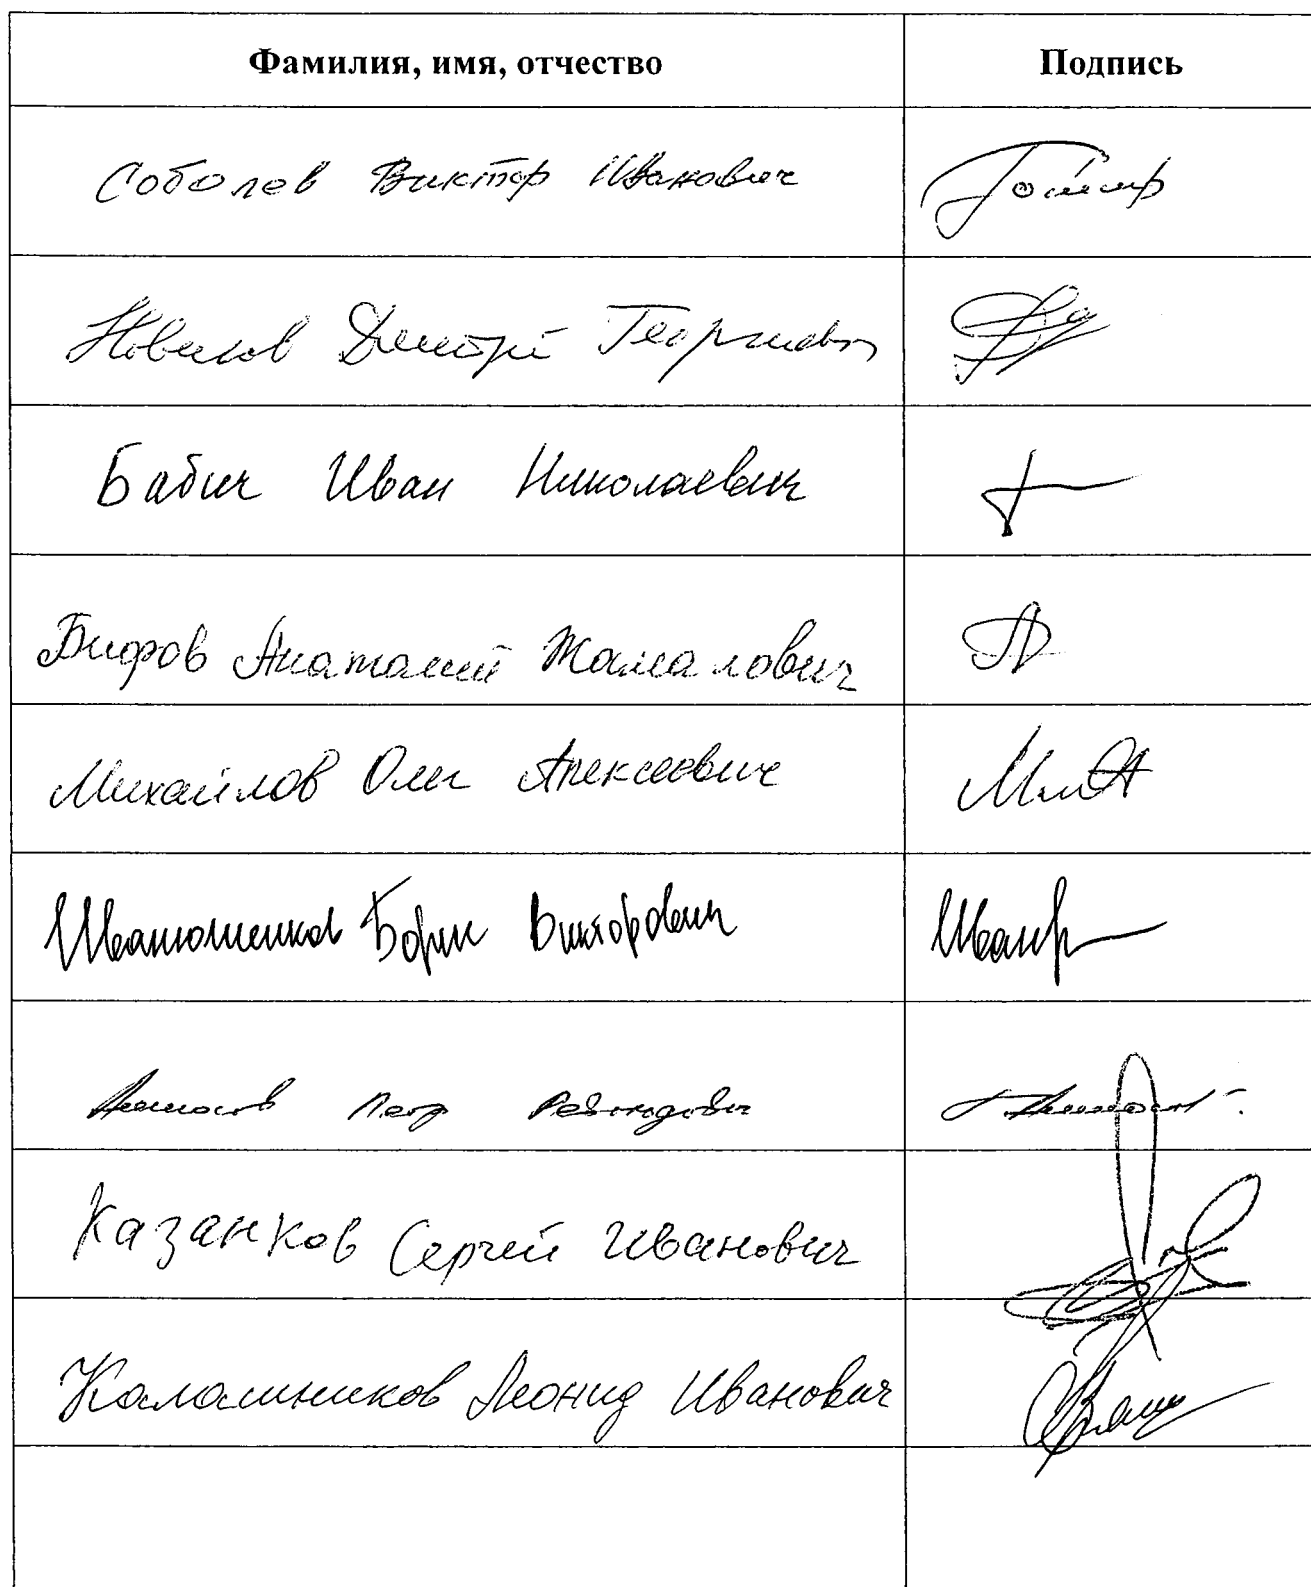 Фамилия, имя, отчество Подпись
Соболев Виктор Иванович
Новиков Дмитрий Георгиевич
Бабич Иван Николаевич
Бифов Анатолий Жамалович
Михайлов Олег Алексеевич
Иванюженков Борис Викторович
Аммосов Петр Револьдович
Казанков Сергей Иванович
Калашников Леонид Иванович